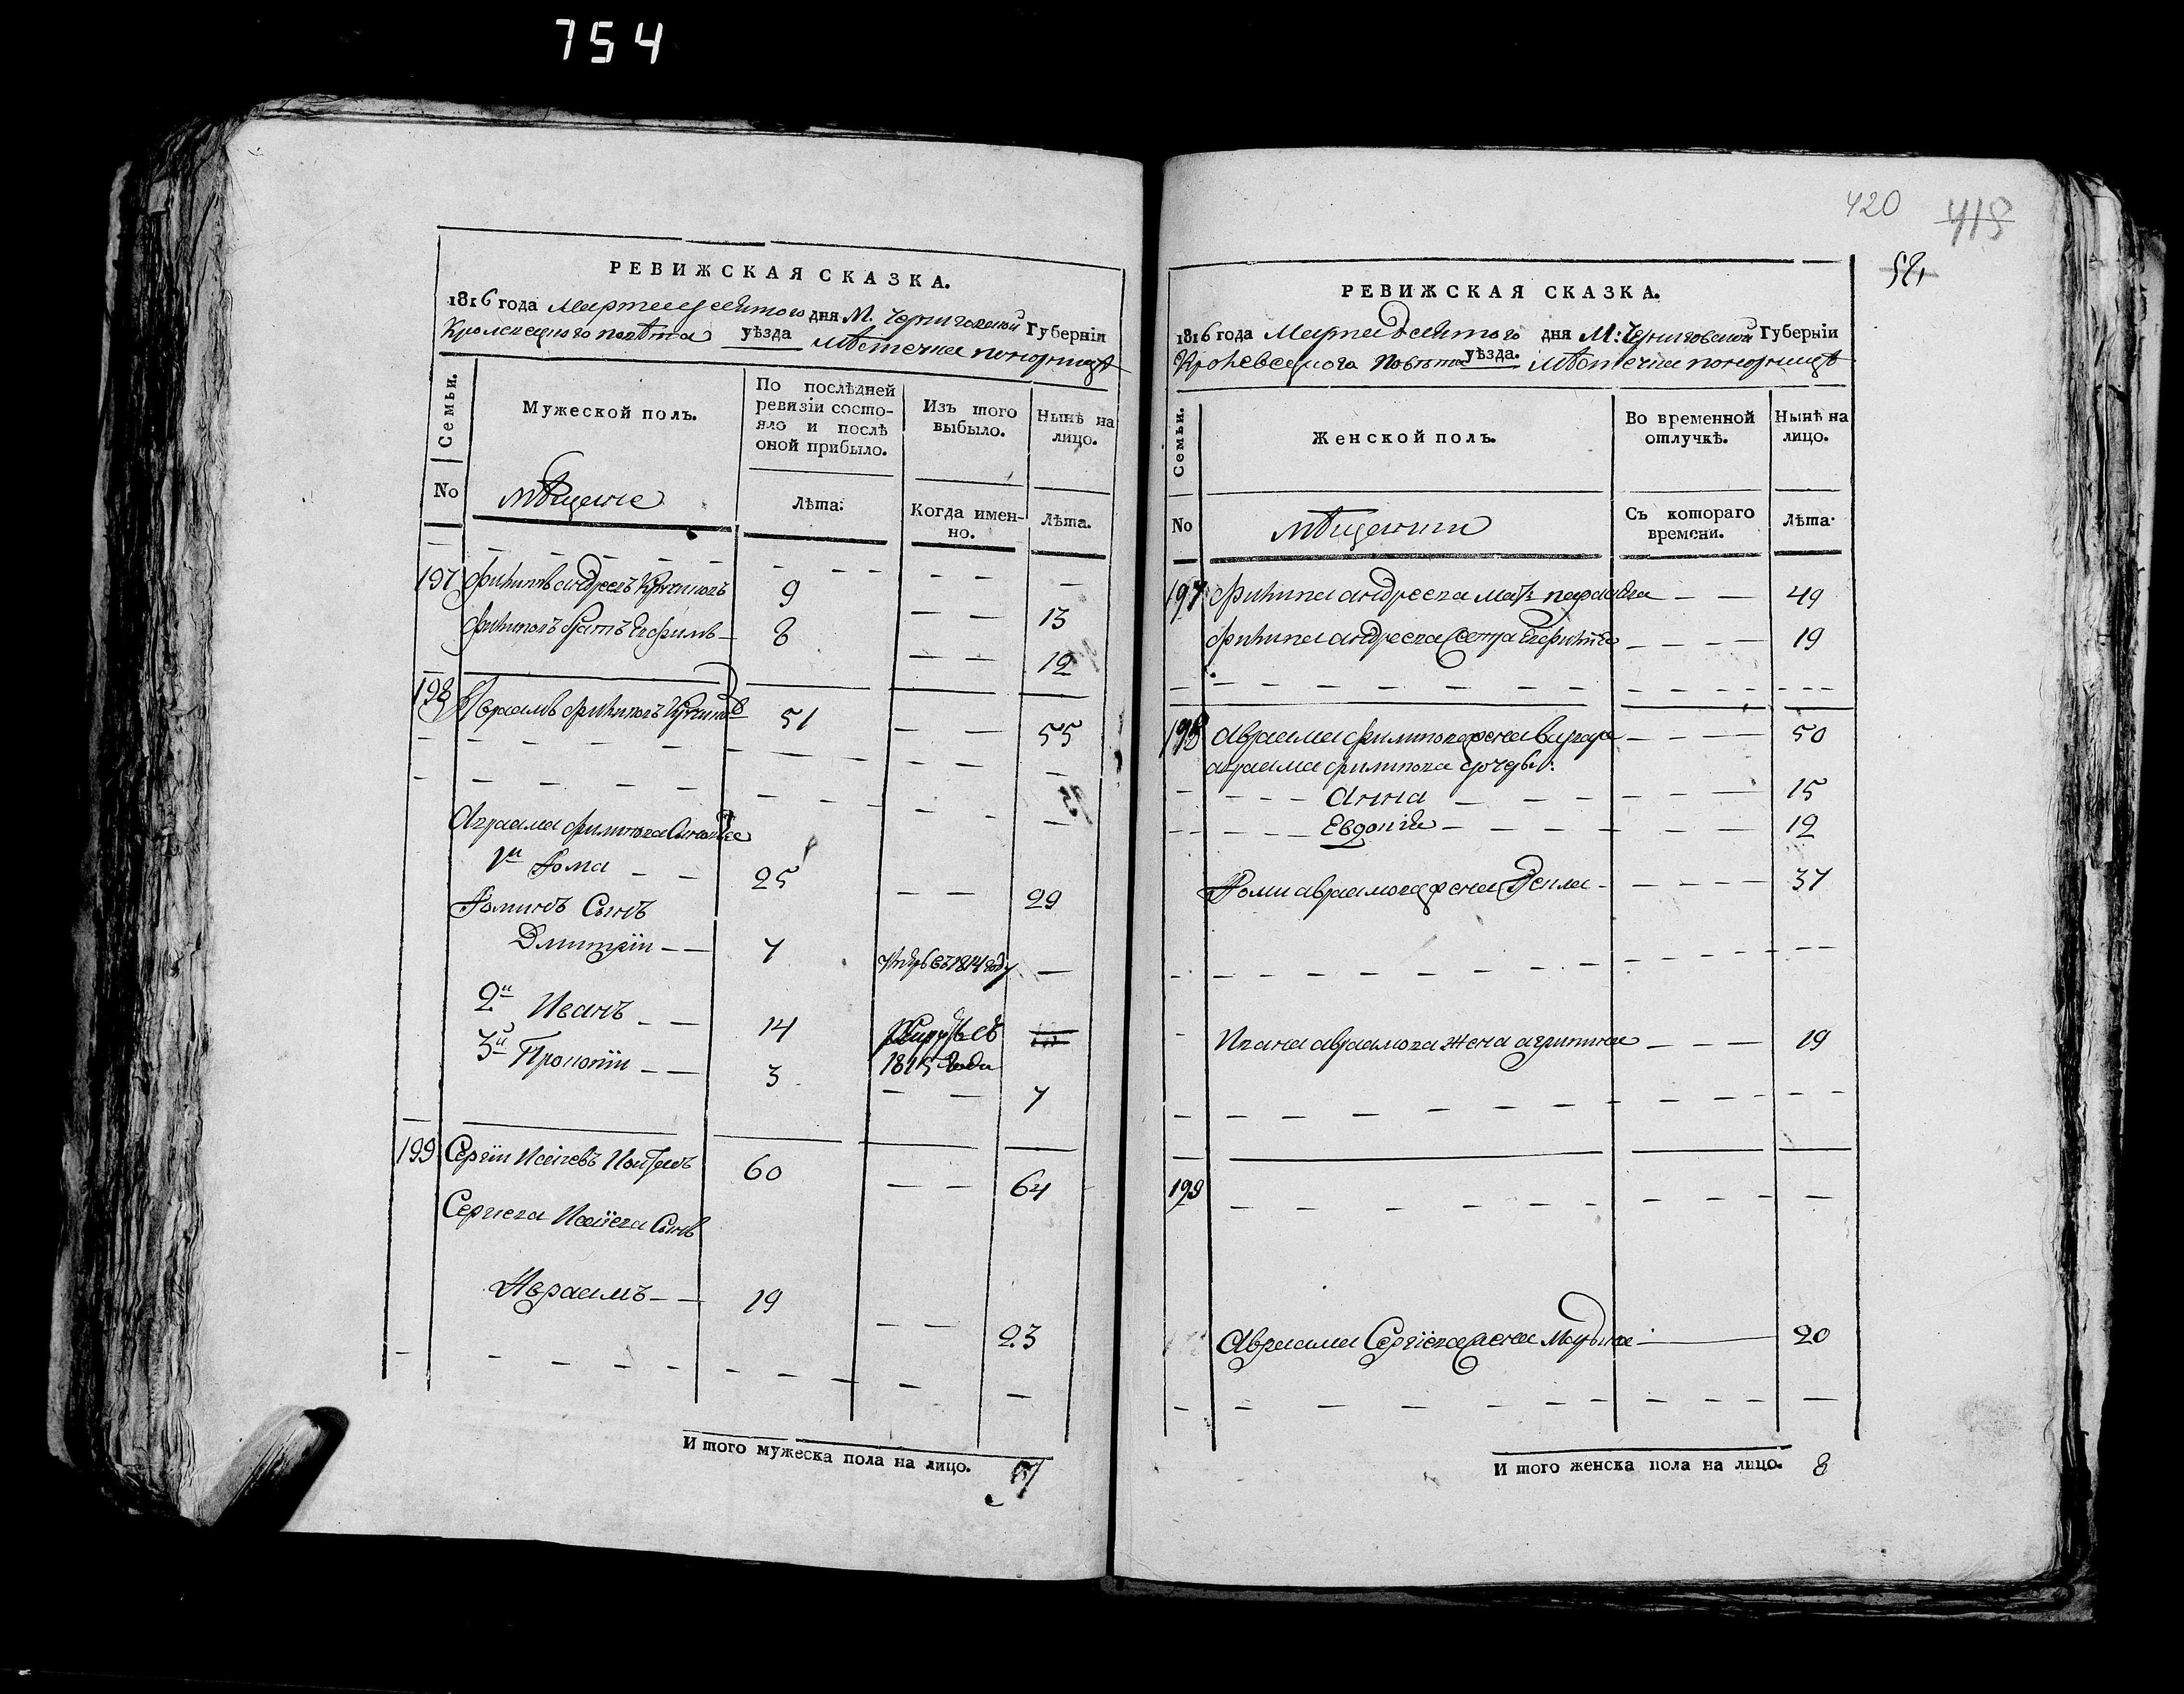 754
РЕВИЖСКАЯ СКАЗКА.
1816 года Марта десятого дня М. Черниговской Губерніи
Кролевецкого повѣта уѣзда мѣстечка понорницѣ
Семьи.
No
Мужеской полъ.
мѣщане
По послѣдней ревизіи состояло и послѣ оной прибыло.
Лѣта:
Изъ того выбыло.
Когда именно.
Нынѣ на лицо.
Лѣта.
197 Филипъ андреевъ 9 13
Филиповъ братъ Евфимъ 8 12
198 Авраамъ Филиповъ 51 55
Авраама филипова Сыновья
1й Фома 25 29
Фоминъ Сынъ
Дмитрій 7 1814 году
2й Иванъ 14
3й Прокопіи 3 1815 года 7
199 Сергіи 60 64
Сергиева Сынъ
Авраамъ 19 23
И того мужеска пола на лицо. 7
420 415
РЕВИЖСКАЯ СКАЗКА.
1816 года Марта Десятого дня М: Черниговской Губерніи
Кролевецкого Повѣта уѣзда. мѣстечка понорницѣ
Семьи.
No
Женской полъ.
мѣщанки
Во временной отлучкѣ.
Съ котораго времени.
Нынѣ на лицо.
Лѣта.
197 Филипа андреева мать параскa 49
Филипа андреева Сестра 19
198 Авраама филипова жена 50
авраама филипова дочери:
Анна 15
Евдокія 12
Фомы авраамова жена 37
Ивана авраамова жена агрипина 19
199
Авраама Сергіева жена Марьяна 20
И того женска пола на лицо. 8